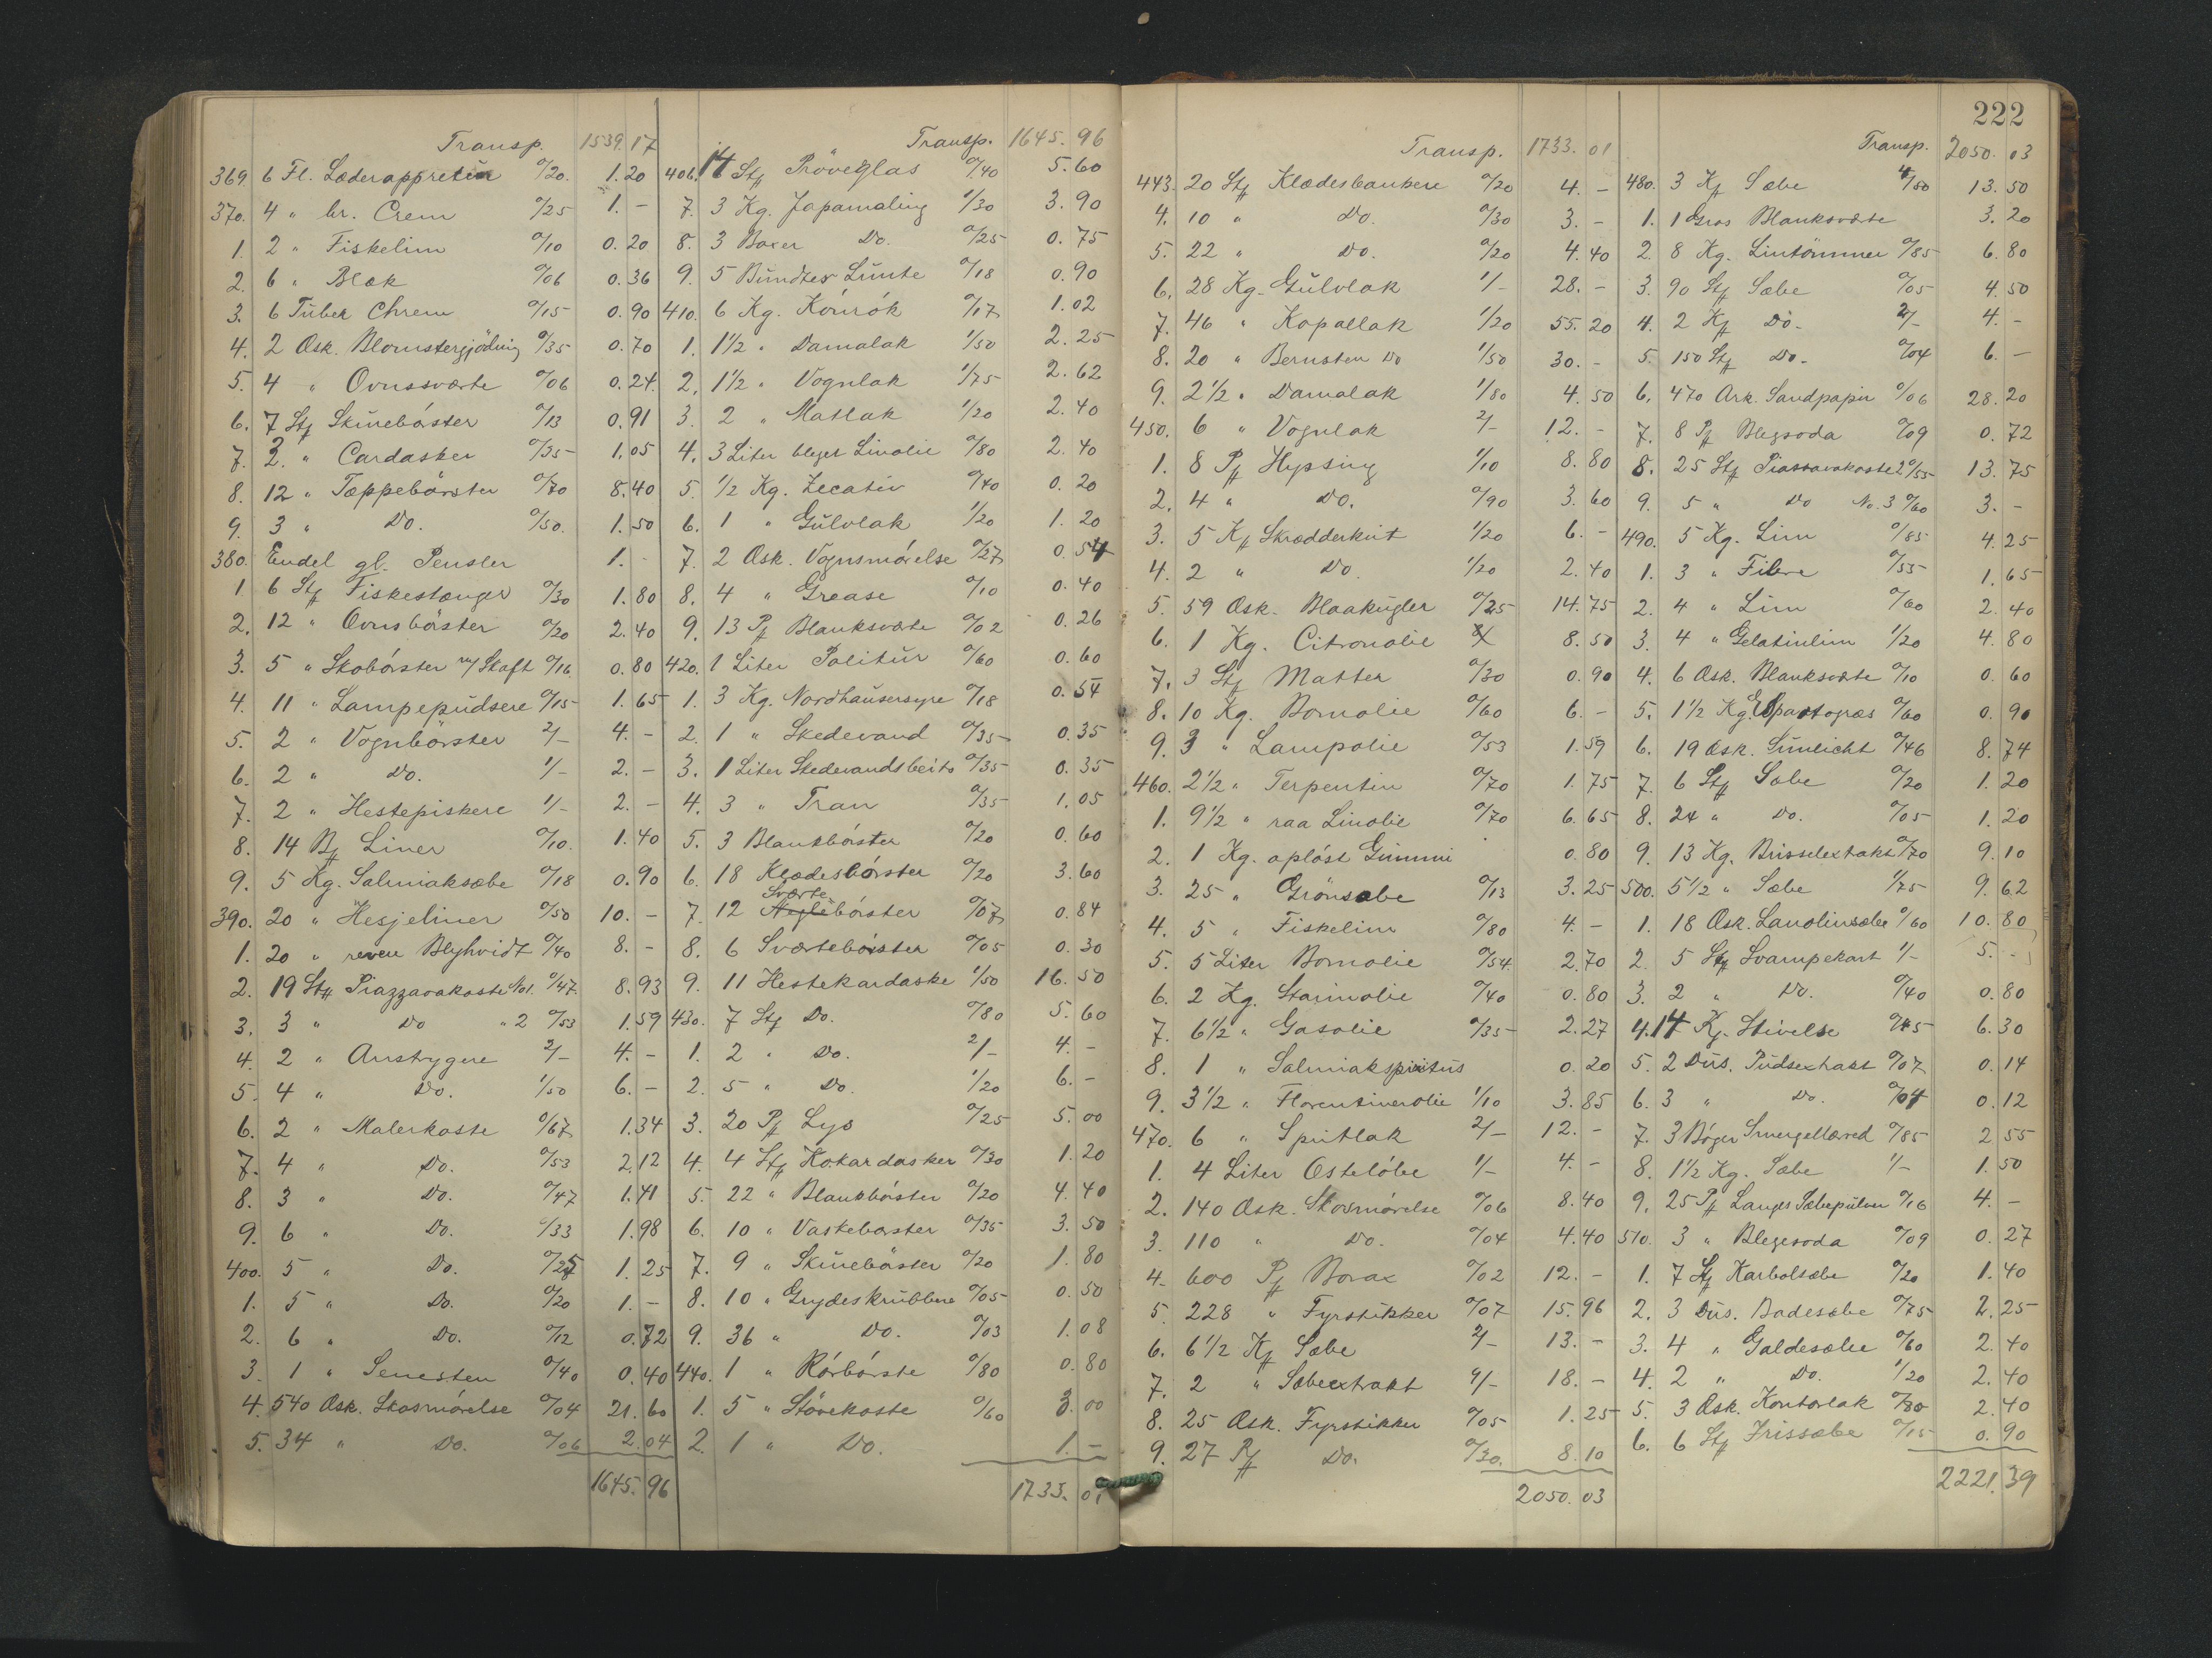 Transp. 1539.17
369. 6 Fl. Læderappretur 0/20. 1.20
370. 4 " br. Crem 0/25 1.-
1. 2 " Fiskelim 0/10 0.20
2. 6 " Blæk 0/06 0.36
3. 6 Tuber Chrem 0/15 0.90
4. 2 Æsk. Blomstergjödning 0/35 0.70
5. 4 " Ovnssværte 0/06 0.24
6. 7 Stk Skurebörster 0/13 0.91
7. 2. " Cardasker 0/35 1.05
8. 12 " Tæppebörster 0/70 8.40
9. 3 " Do. 0/50. 1.50
380. Endel gl. Pensler 1.-
1. 6 Stk Fiskestænger 0/30 1.80
2. 12 " Ovnsbörster 0/20 2.40
3. 5 " Skobörster m/ Skaft 0/16 0.80
4. 11 " Lampepudsere 0/15 1.65
5. 2 " Vognbörster 2/- 4.-
6. 2 " Do. 1/- 2.-
7. 2 " Hestepiskere 1/- 2.-
8. 14 Bt Liner 0/10. 1.40
9. 5 Kg. Salmiaksæbe 0/18 0.90
390. 20 " Hesjeliner 0/50 10.-
1. 20 " reven Blyhvidt 0/40 8.-
2. 19 Stk Piazzavakoste No 1. 0/47. 8.93
3. 3 " Do " 2 0/53 1.59
4. 2 " Anstrygere 2/- 4.-
5. 4 " Do. 1/50 6.-
6. 2 " Malerkoste 0/67 1.34
7. 4 " Do. 0/53 2.12
8. 3 " Do. 0/47 1.41
9. 6 " Do. 0/33 1.98
400. 5 " Do. 0/25 1.25
1. 5 " Do. 0/20 1.-
2. 6 " Do. 0/12 0.72
3. 1 " Senesten 0/40 0.40
4. 540 Æsk. Skosmörelse 0/04 21.60
5. 34 " Do. 0/06 2.04
1645.96
Transp. 1645.96
406. 14 Stk Pröveglas 0/40 5.60
7. 3 Kg. Japamaling 1/30 3.90
8. 3 Boxer Do. 0/25 0.75
9. 5 Bundter Lunte 0/18 0.90
410. 6 Kg. Könrök 0/17 1.02
1. 1 1/2 " Damalak 1/50 2.25
2. 1 1/2 " Vognlak 1/75 2.62
3. 2 " Matlak 1/20 2.40
4. 3 Liter bleget Linolie 0/80 2.40
5. 1/2 Kg. Zecativ 0/40 0.20
6. 1 " Gulvlak 1/20 1.20
7. 2 Æsk. Vognsmörelse 0/27 0.54
8. 4 " Grease 0/10 0.40
9. 13 Pk Blanksværte 0/02 0.26
420. 1 Liter Politur 0/60 0.60
1. 3 Kg. Nordhausersyre 0/18 0.54
2. 1 " Skedevand 0/35 0.35
3. 1 Liter Skedevandsbeits 0/35 0.35
4. 3 " Tran 0/35 1.05
5. 3 Blankbörster 0/20 0.60
6. 18 Klædesbörster 0/20 3.60
Sværte
7. 12 Neglebörster 0/07 0.84
8. 6 Sværtebörster 0/05 0.30
9. 11 Hestekardaske 1/50 16.50
430. 7 Stk Do. 0/80 5.60
1. 2 " Do. 2/- 4.-
2. 5 " Do. 1/20 6.-
3. 20 Pk Lys 0/25 5.00
4. 4 Stk Kokardasker 0/30 1.20
5. 22 " Blankbörster 0/20 4.40
6. 10 " Vaskebörster 0/35 3.50
7. 9 " Skurebörster 0/20 1.80
8. 10 " Grydeskrubbere 0/05 0.50
9. 36 " Do. 0/03 1.08
440. 1 " Rörbörste 0/80 0.80
1. 5 " Stövekoste 0/60 3.00
2. 1 " Do. 1.-
1733.01
Transp. 1733.01
443. 20 Stk Klædesbankere 0/20 4.-
4. 10 " Do. 0/30 3.-
5. 22 " Do. 0/20 4.40
6. 28 Kg. Gulvlak 1/- 28.-
7. 46 " Kopallak 1/20 55.20
8. 20 " Bernsten Do 1/50 30.-
9. 2 1/2 " Damalak 1/80 4.50
450. 6 " Vognlak 2/- 12.-
1. 8 Pk Hypsing 1/10 8.80
2. 4 " Do. 0/90 3.60
3. 5 Kg Skrædderkrit 1/20 6.-
4. 2 " Do. 1/20 2.40
5. 59 Æsk. Blaakugler 0/25 14.75
6. 1 Kg. Citronolie 8.50
7. 3 Stk Matter 0/30 0.90
8. 10 Kg. Bomolie 0/60 6.-
9. 3 " Lampolie 0/53 1.59
460. 2 1/2 " Terpentin 0/70 1.75
1. 9 1/2 " raa Linolie 0/70 6.65
2. 1 Kg. oplöst Gummi 0.80
3. 25 " Grönsæbe 0/13 3.25
4. 5 " Fiskelim 0/80 4.-
5. 5 Liter Bomolie 0/54. 2.70
6. 2 Kg. Starinolie 0/40 0.80
7. 6 1/2 " Gasolie 0/35 2.27
8. 1 " Salmiakspiritus 0.20
9. 3 1/2 " Florentinerolie 1/10 3.85
470. 6 " Spritlak 2/- 12.-
1. 4 Liter Osteløbe 1/- 4.-
2. 140 Æsk. Skosmörelse 0/06 8.40
3. 110 " Do. 0/04 4.40
4. 600 Pk Borax 0/02 12.-
5. 228 " Fyrstikker 0/07 15.96
6. 6 1/2 Kg Sæbe 2/- 13.-
7. 2 " Sæbeextrakt 9/- 18.-
8. 25 Æsk. Fyrstikker 0/05 1.25
9. 27 Pk Do. 0/30. 8.10
2050.03
222
Transp. 2050.03
480. 3 Kg Sæbe 4/50 13.50
1. 1 Gros Blanksværte 3.20
2. 8 Kg. Lintömmer 0/85 6.80
3. 90 Stk Sæbe 0/05 4.50
4. 2 Kg Do. 2/- 4.-
5. 150 Stk Do. 0/04 6.-
6. 470 Ark. Sandpapir 0/06 28.20
7. 8 Pk Blegsoda 0/09 0.72
8. 25 Stk Piassavakoste 2 0/55 13.75
9. 5 " Do No. 3 0/60 3.-
490. 5 Kg. Lim 0/85 4.25
1. 3 " Fibre 0/55 1.65
2. 4 " Lim 0/60 2.40
3. 4 " Gelatinlim 1/20 4.80
4. 6 Æsk. Blanksværte 0/10 0.60
5. 1 1/2 Kg. Espartogræs 0/60 0.90
6. 19 Æsk. Sunlicht 0/46 8.74
7. 6 Stk Sæbe 0/20 1.20
8. 24 " Do. 0/05 1.20
9. 13 Kg. Brisselextakt 0/70 9.10
500. 5 1/2 " Sæbe 1/75 9.62
1. 18 Æsk. Lanolinsæbe 0/60 10.80
2. 5 Stk Svampekart 1/- 5.-
3. 2 " Do. 0/40 0.80
4. 14 Kg. Stivelse 0/45 6.30
5. 2 Dus. Pudsextrakt 0/07 0.14
6. 3 " Do. 0/04 0.12
7. 3 Böger Smergellærred 0/85 2.55
8. 1 1/2 Kg. Sæbe 1/- 1.50
9. 25 Pk Langes Sæbepulver 0/16 4.-
510. 3 " Blegesoda 0/09 0.27
1. 7 Stk Karbolsæbe 0/20 1.40
2. 3 Dus. Badesæbe 0/75 2.25
3. 4 " Galdesæbe 0/60 2.40
4. 2 " Do. 1/20 2.40
5. 3 Æsk. Kontorlak 0/80 2.40
6. 6 Stk Irissæbe 0/15 0.90
2221.39